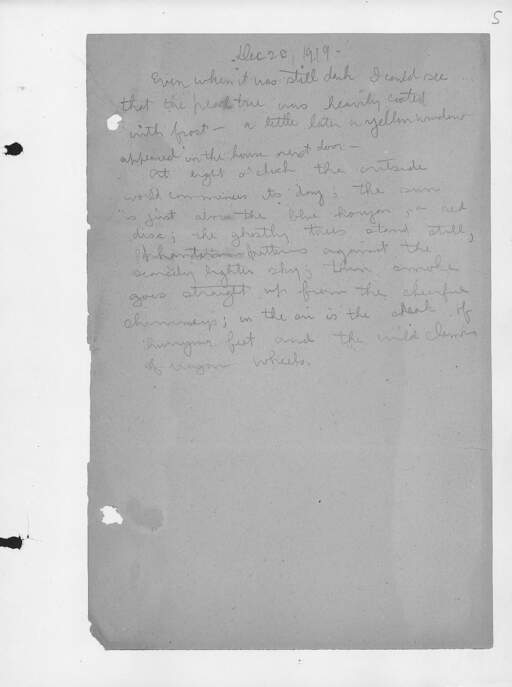 5
Dec 28, 1919 -
Even when it was still dark I could see
that the peach tree was heavily coated
with frost - a little later a yellow window
appeared in the house next door -
At eight o'clock the outside
world commences its day; the sun
is just above the blue horizon, a red
disc; the ghostly trees stand still,
patterns against the
scarcely lighter sky; thin smoke
goes straight up from the cheerful
chimneys; in the air is the creak of
hurrying feet and the mild clamor
of wagon wheels.